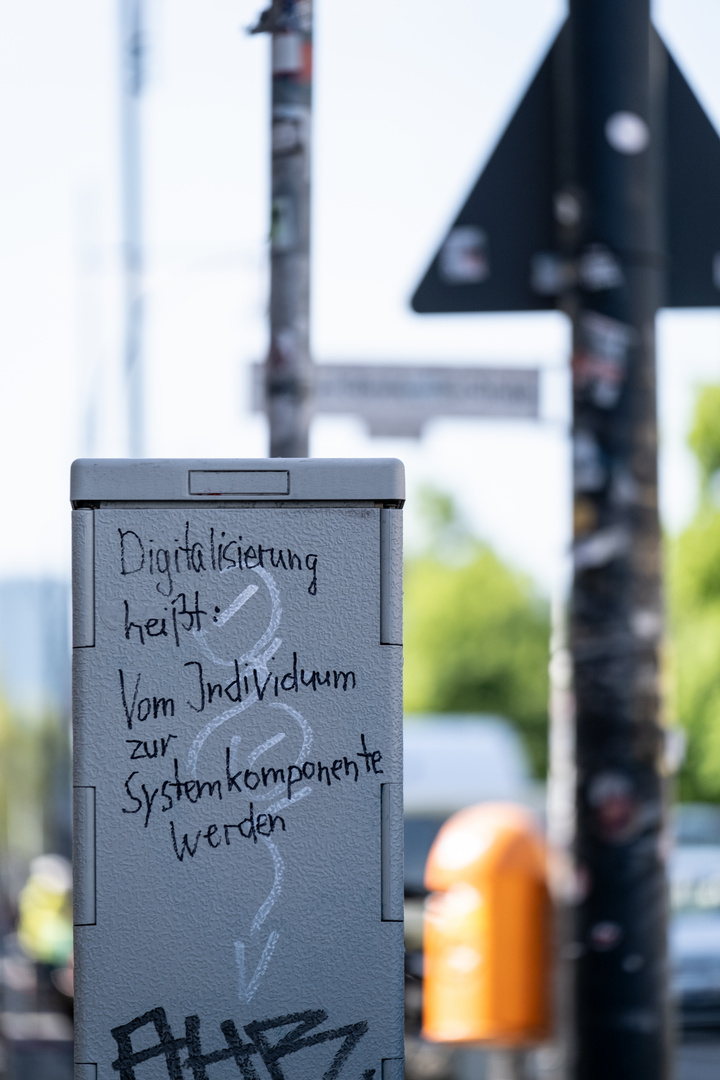 Digitalisierung
heißt:
Vom Individuum
zur
Systemkomponente
werden